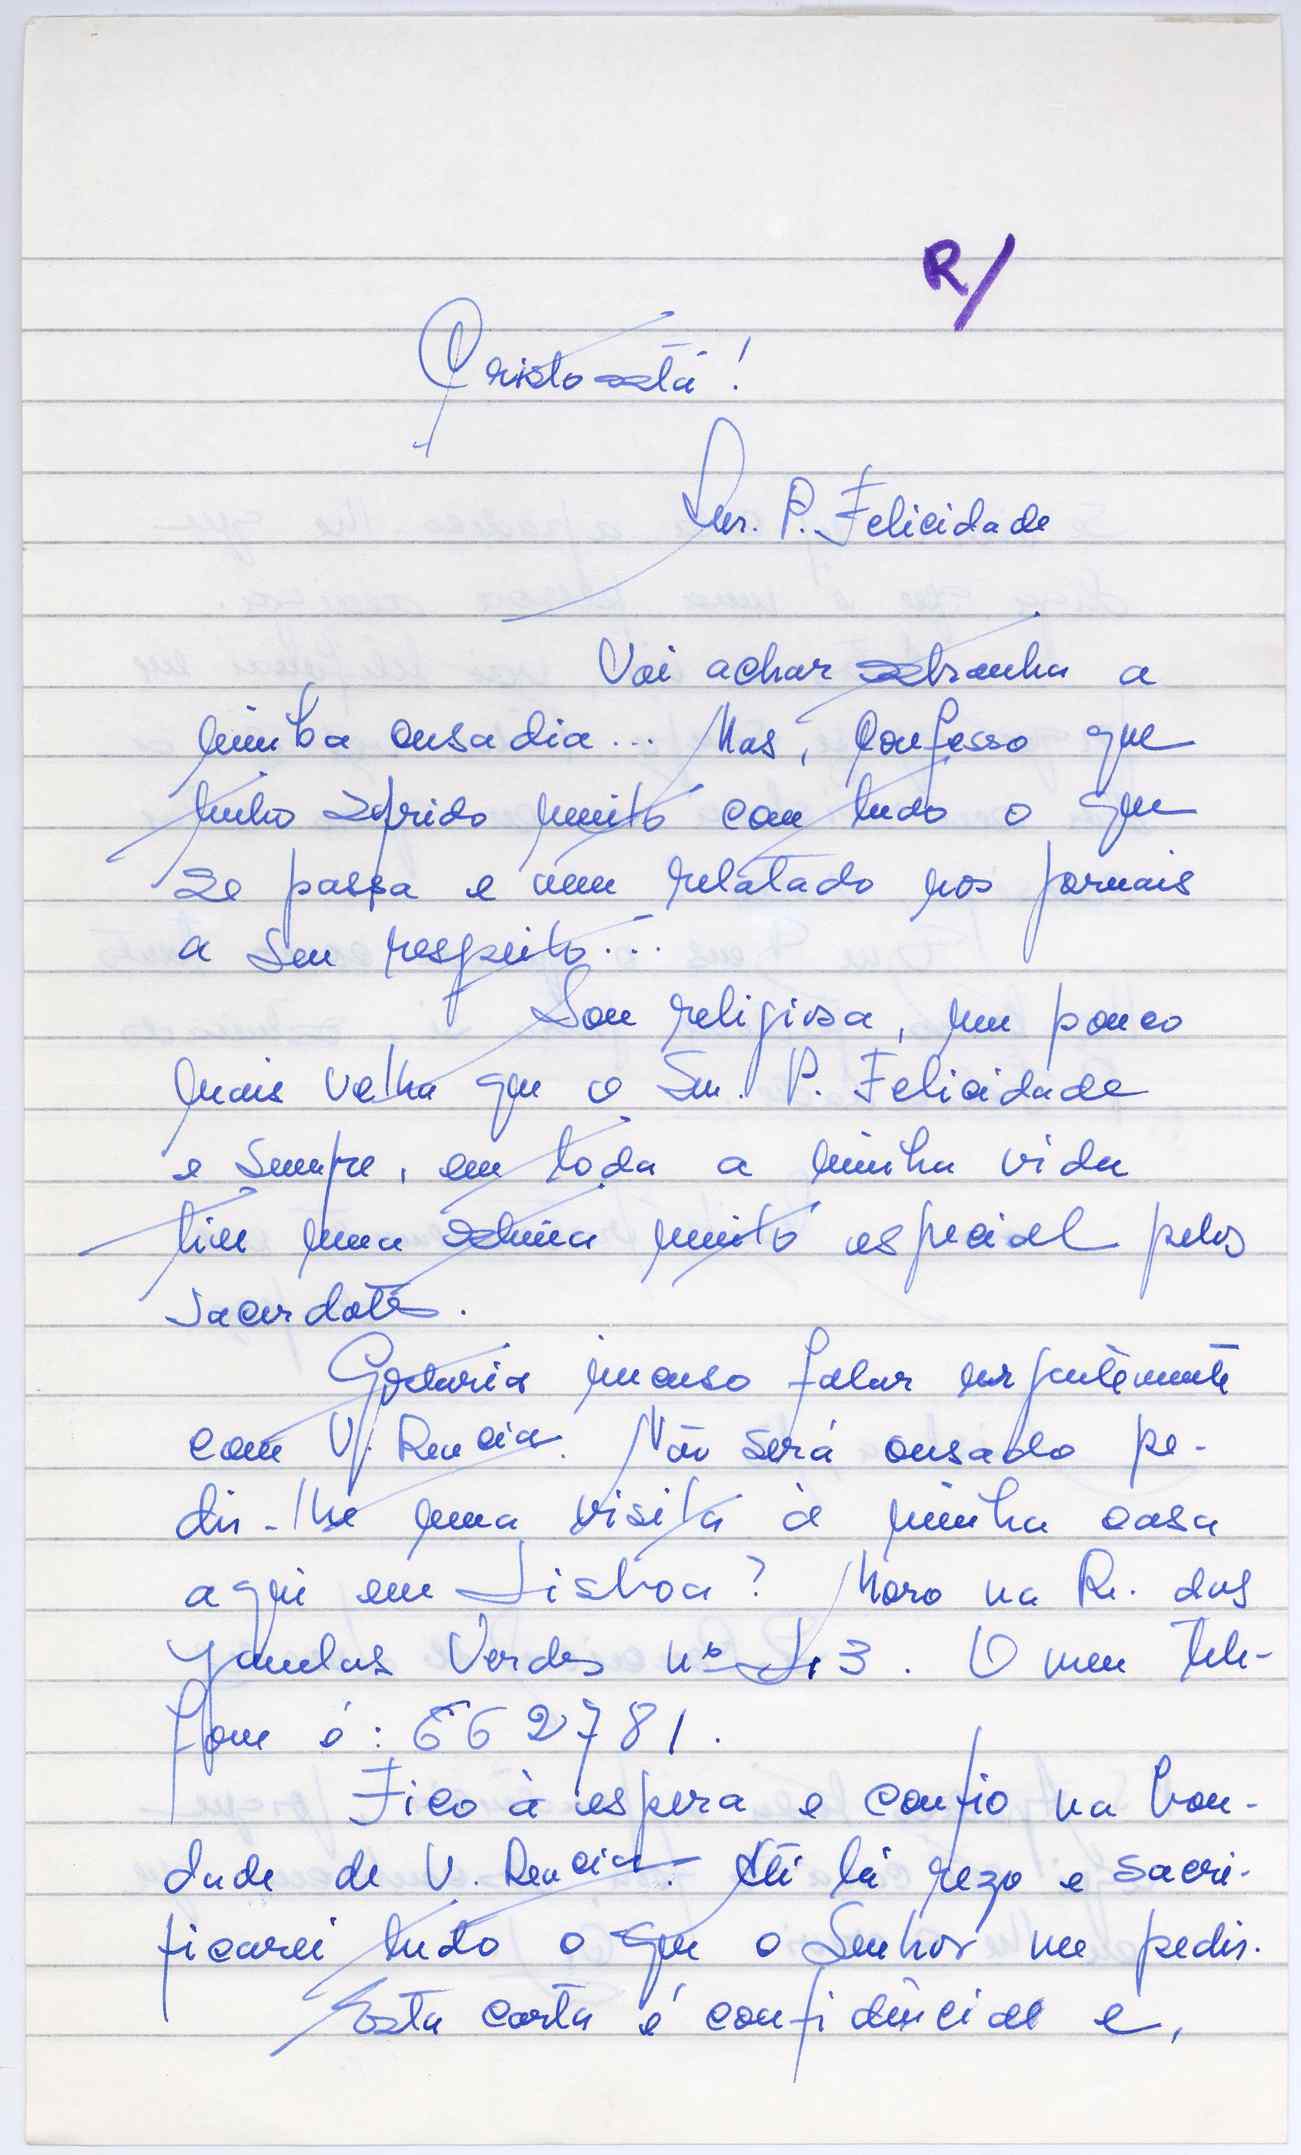 R/
Cristo está!
Snr. P. Felicidade
Vai achar estranha a
minha ousadia... Mas, confesso que
tenho sofrido muito com tudo o que
se passa e vem relatado nos jornais
a seu respeito...
Sou religiosa, um pouco
mais velha que o Snr. P. Felicidade
e sempre, em toda a minha vida
tive uma estima muito especial pelos
sacerdotes.
Gostaria imenso falar urgentemente
com V. Rencia. Não será ousado pe-
dir-lhe uma visita à minha casa
aqui em Lisboa? Moro na R. das
Janelas Verdes nº 3. O meu tele-
fone é: 662781.
Fico à espera e confio na bon-
dade de V. Rencia. Até lá rezo e sacri-
ficarei tudo o que o Senhor me pedir.
Esta carta é confidencial e,